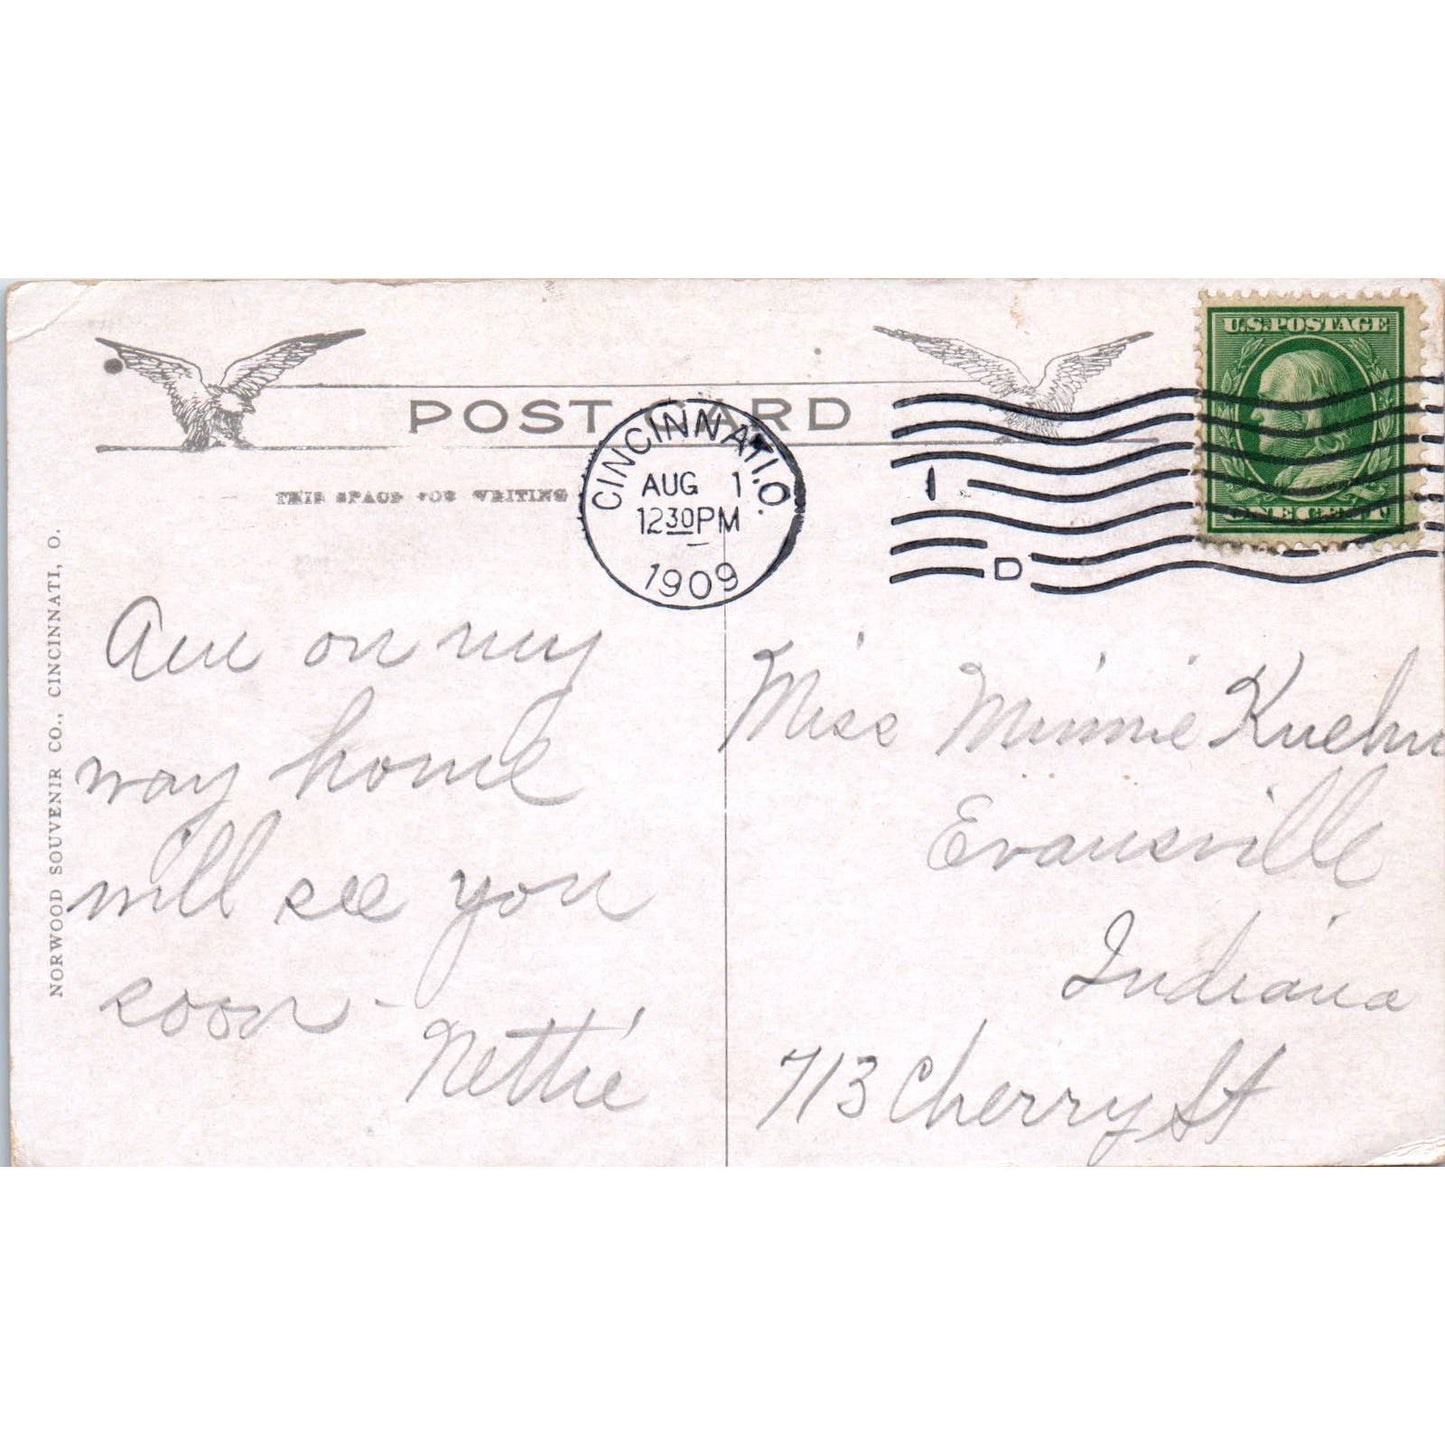 POST CARD
THIS SPACE FOR WRITING
CINCINNATI, O.
AUG 1
12 30 PM
1909
1
D
U.S. POSTAGE
ONE CENT
NORWOOD SOUVENIR CO., CINCINNATI, O.
Am on my
way home
will see you
soon -
Nettie
Miss Minnie Kuehn
Evansville
Indiana
713 Cherry St